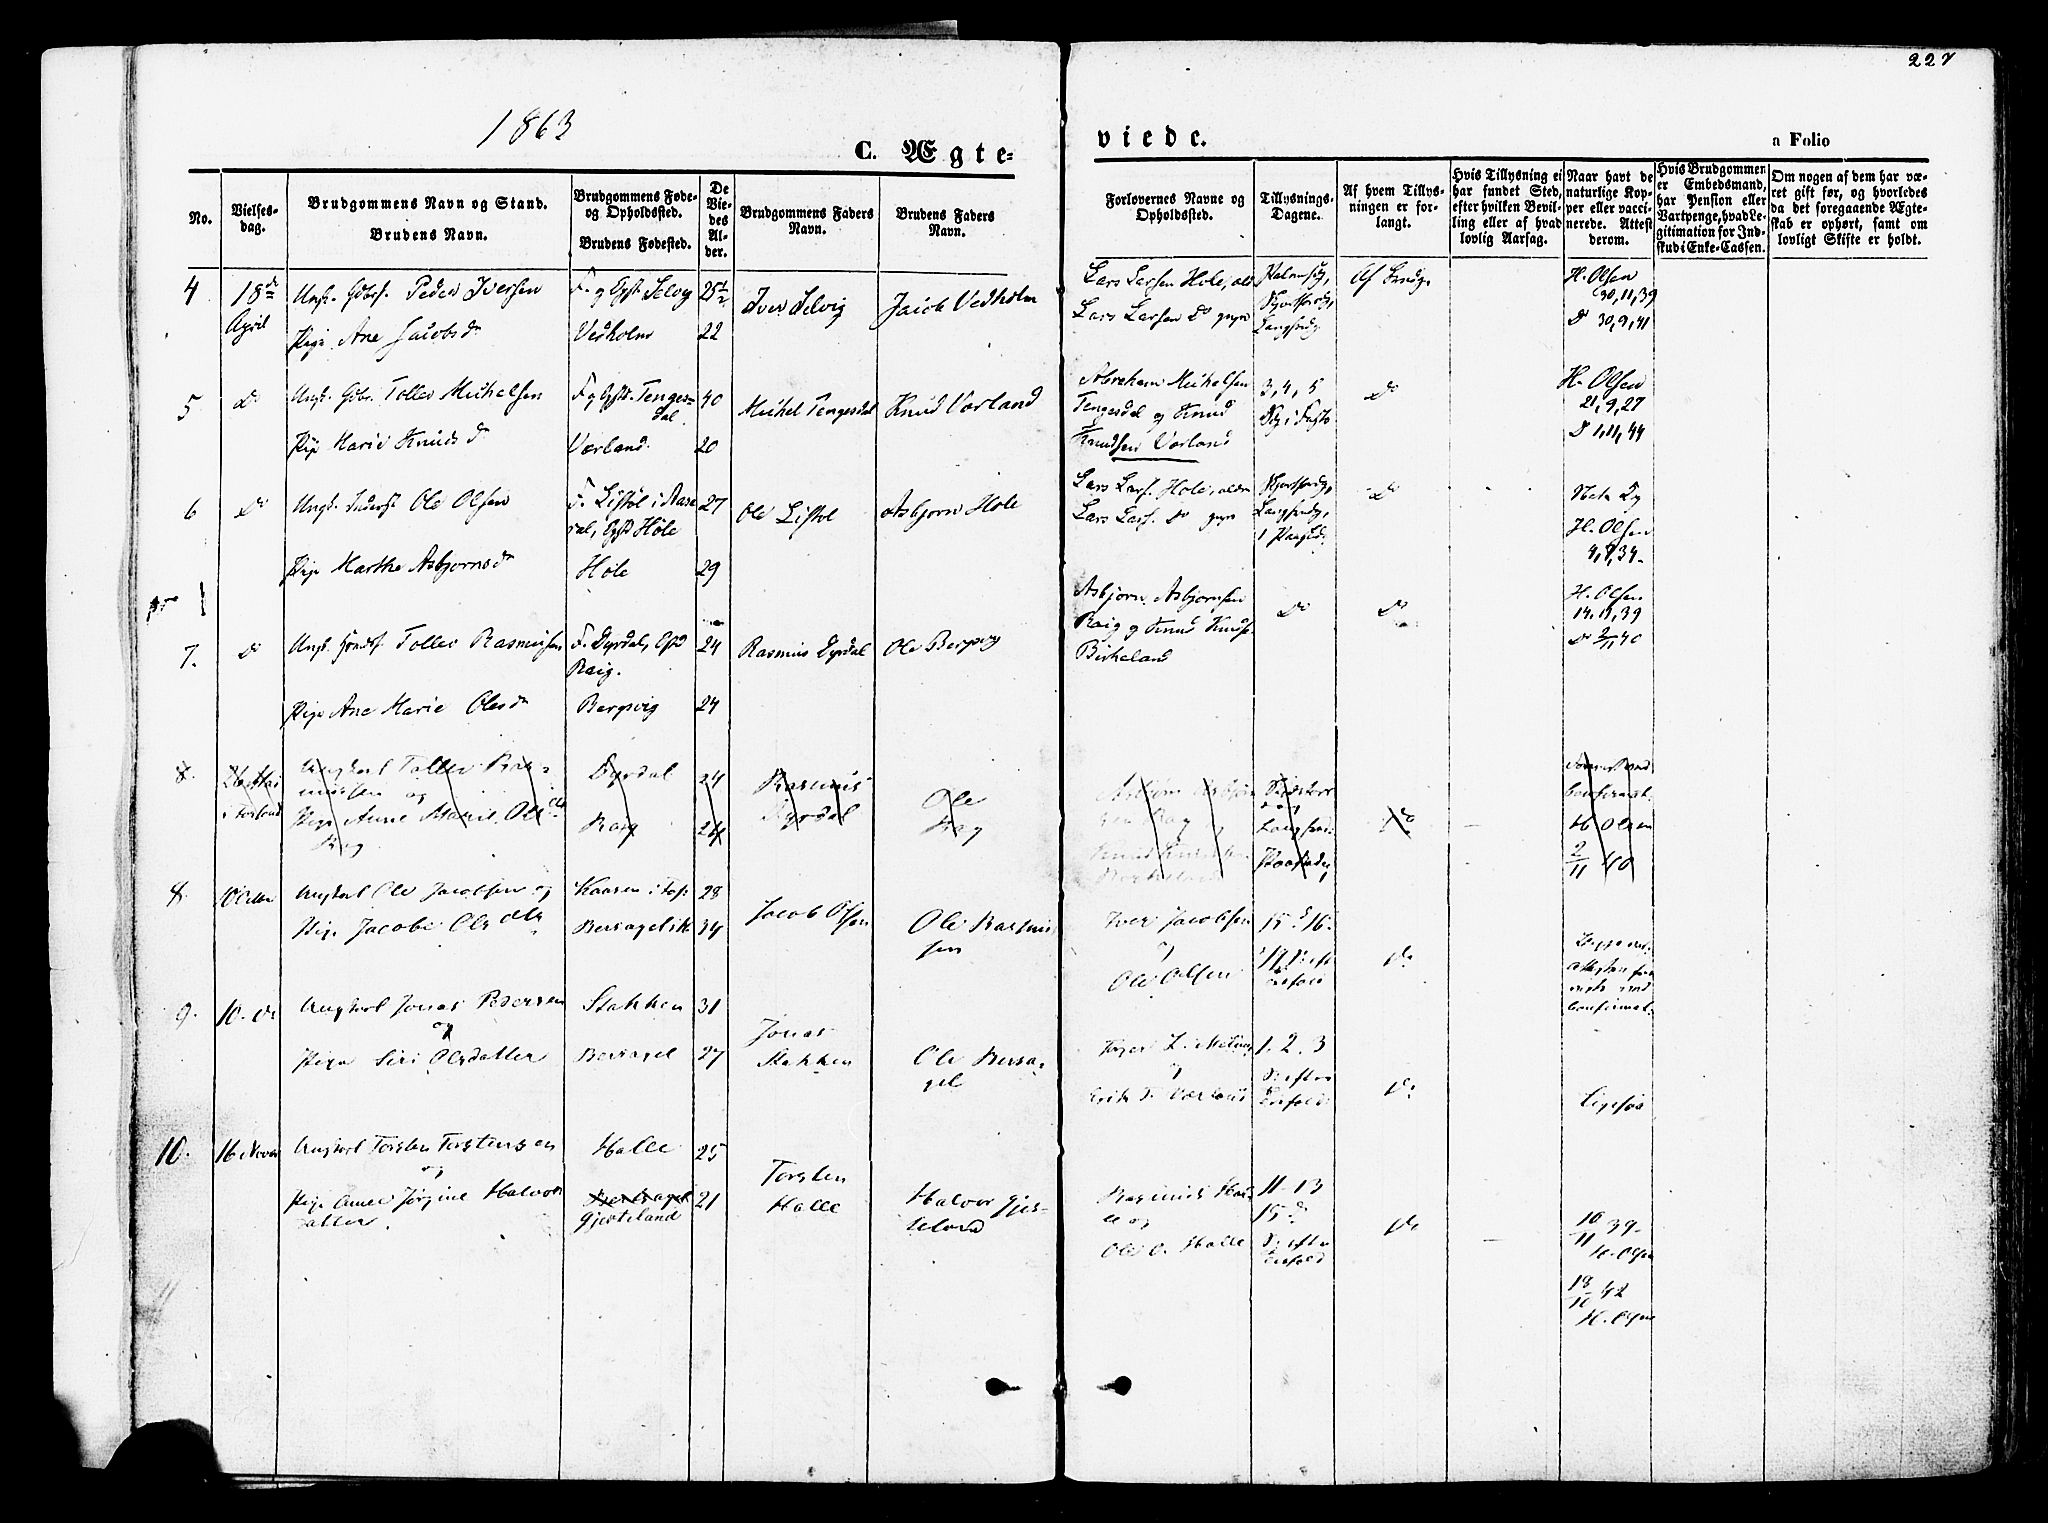 227
1863
C. Ægte=
viede.
a Folio
No.
Vielses-
dag.
Brudgommens Navn og Stand.
Brudens Navn.
Brudgommens Føde-
og Opholdssted.
Brudens Fødested.
De
Vie-
des
Al-
der.
Brudgommens Faders
Navn.
Brudens Faders
Navn.
Forlovernes Navne og
Opholdssted.
Tillysnings-
Dagene.
Af hvem Tillys-
ningen er for-
langt.
Hvis Tillysning ei
har fundet Sted,
efter hvilken Bevil-
ling eller af hvad
lovlig Aarsag.
Naar havt de
naturlige Kop-
per eller vacci-
nerede. Attest
derom.
Hvis Brudgommen
er Embedsmand,
har Pension eller
Vartpenge, hvad Le-
gitimation for Ind-
skud i Enke-Cassen.
Om nogen af dem har væ-
ret gift før, og hvorledes
da det foregaaende Ægte-
skab er ophørt, samt om
lovligt Skifte er holdt.
4
18de
April
Ungk. Gdbrs. Peder Iversen
Pige Ane Jacobsd
F. og Opst Selvig
Vedholm
25½
22
Iver Selvig
Jacob Vedholm
Lars Larsen Hole, æld
Lars Larsen do yngre
Palmesdg,
Skjærtorsdg,
Langfredg
Af Brudg.
H. Olsen
30, 11, 39
do 30, 9, 41
5
do
Ungk. Gdbr. Tollev Michelsen
Pige Marie Knudsd
F og Opst. Tenges-
dal
Værland.
40
20
Michel Tengesdal
Knud Værland
Abraham Michelsen
Tengesdal og Knud
Knudsen Værland
3, 4, 5
Sdg i Faste
do
H. Olsen
21, 9, 27
do 1, 11, 44
6
do
Ungk. Inderst Ole Olsen
Pige Marthe Asbjørnsd
F. Listøl i Aase
ral, Opst Hole
Hole
27
29
Ole Listøl
Asbjørn Hole
Lars Lars. Hole, ældre
Lars Lars. do yngre
Skjærtorsdg,
Langfredg,
1 Paaskd.
do
H. Olsen
7.
do
Ungk. Tollev Rasmussen
Pige Ane Marie Olesd
F. Dyrdal, Opst
Raig.
Bergevig
24
24
Rasmus Dyrdal
Ole Bergevig
Asbjørn Asbjørnsen
Raig og Knud Knuds.
Birkeland
do
do
H. Olsen
14, 11, 39
do 2/11 40
8.
26 Mai
Ungkarl Tollev Ras-
mussen og
Pige Anne Marie Ols
Rag
Dyrdal
Rag
24
24
Rasmus
Dyrdal
Ole
Rag
Langfre:
do
H Olsen
2/11 40
8.
10 Octbr
Ungkarl Ole Jacobsen og
Pige Jacobe Ols dtr
Bersagelik
28
34
Jacob Olsen
Ole Rasmus
sen
Iver Jacobsen
og
Ole Olsen
15. 16.
do
9.
10. do
Ungkarl Jonas Pedersen
og
Pige Siri Olsdatter
Stakken
Bersagel
31
27
Jonas
Stakken
Ole Bersa-
gel
og
Erik T. Værland
1. 2. 3
S. efter
Trefold:
do
Ligesaa
10.
16 Novbr
Ungkarl Torsten Torstensen
og
Pige Anne Jørgine Halvors
datter.
Halle
Bersagel
Gjerteland
25
21
Torsten
Halle
Halvor
Rasmus Hal-
le og
Ole O. Halle
11. 13
15 de
S. efter
Trefold
do
10/11 39.
H. Olsen
18/10 42
H. Olsen